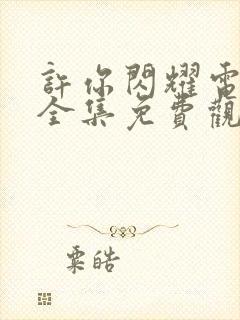 許你閃耀電
全集免費觀
粟皓